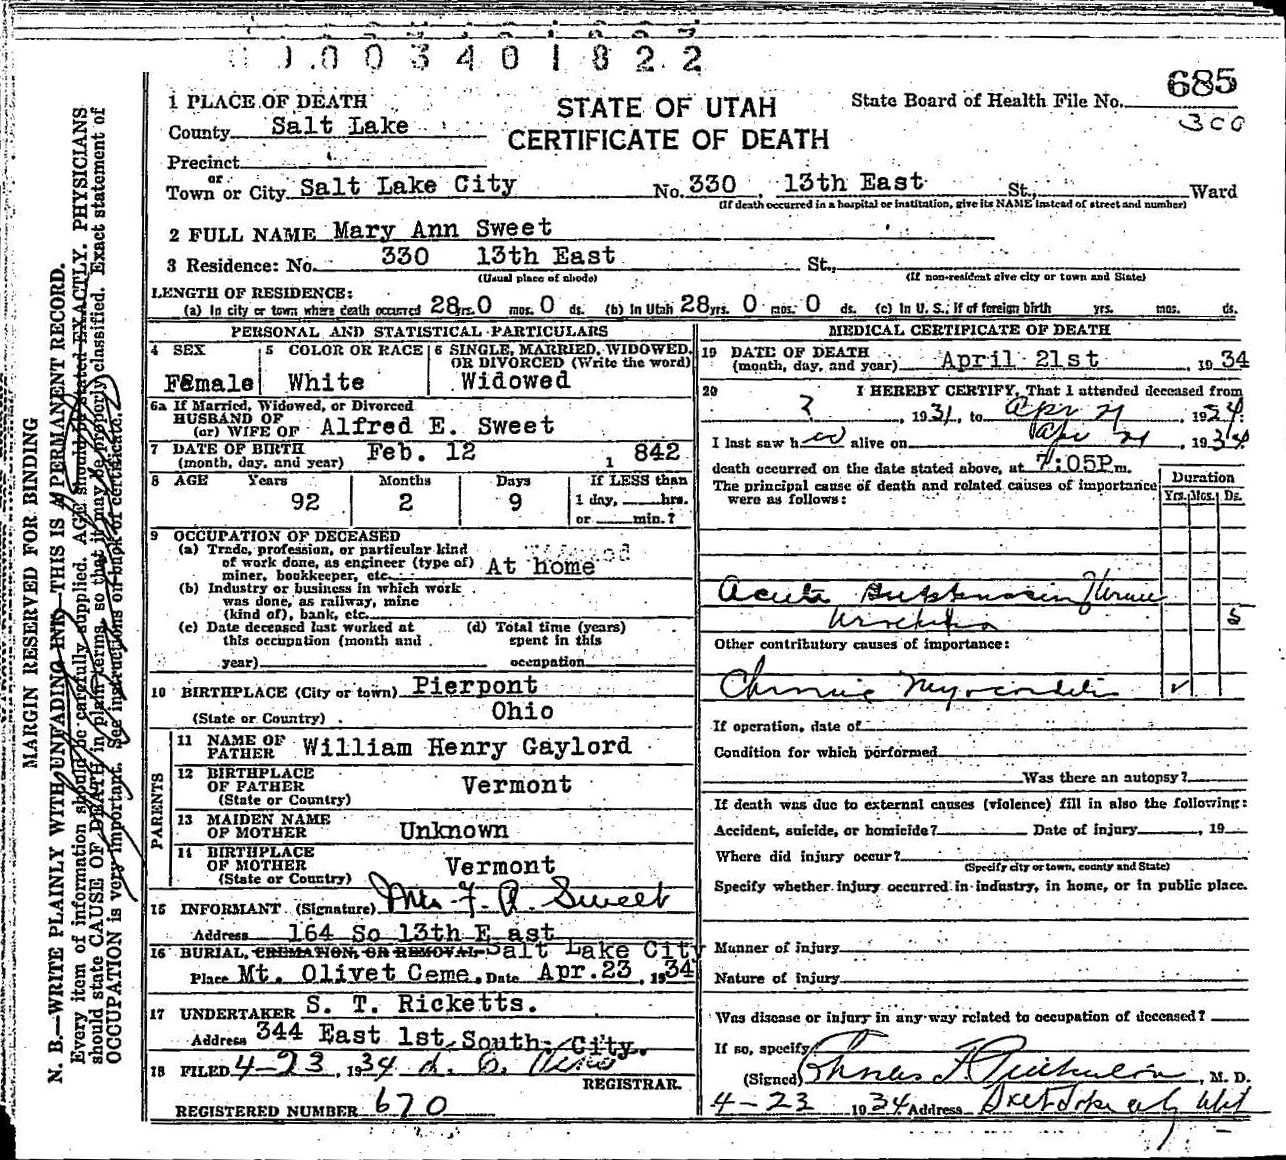 003401822
685
300
1 PLACE OF DEATH
STATE OF UTAH
State Board of Health File No.
County Salt Lake
CERTIFICATE OF DEATH
Precinct
or
Town or City Salt Lake City No. 330 13th East St., Ward
(If death occurred in a hospital or institution, give its NAME instead of street and number)
2 FULL NAME Mary Ann Sweet
3 Residence: No. 330 13th East St.,
(Usual place of abode) (If non-resident give city or town and State)
LENGTH OF RESIDENCE:
(a) In city or town where death occurred 28 yrs. 0 mos. 0 ds. (b) In Utah 28 yrs. 0 mos. 0 ds. (c) In U. S., if of foreign birth yrs. mos. ds.
PERSONAL AND STATISTICAL PARTICULARS
4 SEX
Female
5 COLOR OR RACE
White
6 SINGLE, MARRIED, WIDOWED,
OR DIVORCED (Write the word)
Widowed
6a If Married, Widowed, or Divorced
HUSBAND OF
(or) WIFE OF Alfred E. Sweet
7 DATE OF BIRTH
(month, day, and year) Feb. 12 1 842
8 AGE Years Months Days If LESS than
92 2 9 1 day, hrs.
or min.?
9 OCCUPATION OF DECEASED
(a) Trade, profession, or particular kind
of work done, as engineer (type of)
miner, bookkeeper, etc. At home
(b) Industry or business in which work
was done, as railway, mine
(kind of), bank, etc.
(c) Date deceased last worked at
this occupation (month and
year)
(d) Total time (years)
spent in this
occupation
10 BIRTHPLACE (City or town) Pierpont
(State or Country) Ohio
PARENTS
11 NAME OF
FATHER William Henry Gaylord
12 BIRTHPLACE
OF FATHER Vermont
(State or Country)
13 MAIDEN NAME
OF MOTHER Unknown
14 BIRTHPLACE
OF MOTHER Vermont
(State or Country)
15 INFORMANT (Signature) Mrs F. A. Sweet
Address 164 So 13th East
16 BURIAL, CREMATION, OR REMOVAL Salt Lake City
Place Mt. Olivet Ceme. Date Apr. 23, 1934
17 UNDERTAKER S. T. Ricketts.
Address 344 East 1st South, City.
18 FILED 4-23, 1934
REGISTRAR.
REGISTERED NUMBER 670
MEDICAL CERTIFICATE OF DEATH
19 DATE OF DEATH
(month, day, and year) April 21st, 1934
20 I HEREBY CERTIFY, That I attended deceased from
?, 1931, to Apr 21, 1934
I last saw her alive on Apr 21, 1934
death occurred on the date stated above, at 7:05P m.
The principal cause of death and related causes of importance
were as follows:
Duration
Yrs. Mos. Ds.
Acute
5
Other contributory causes of importance:
Chronic Myocarditis
If operation, date of
Condition for which performed
Was there an autopsy?
If death was due to external causes (violence) fill in also the following:
Accident, suicide, or homicide? Date of injury, 19
Where did injury occur?
(Specify city or town, county and State)
Specify whether injury occurred in industry, in home, or in public place.
Manner of injury
Nature of injury
Was disease or injury in any way related to occupation of deceased?
If so, specify
(Signed) , M. D.
4-23 1934 Address Salt Lake City Utah
MARGIN RESERVED FOR BINDING
N. B.—WRITE PLAINLY WITH UNFADING INK—THIS IS A PERMANENT RECORD.
Every item of information should be carefully supplied. AGE should be stated EXACTLY. PHYSICIANS
should state CAUSE OF DEATH in plain terms, so that it may be properly classified. Exact statement of
OCCUPATION is very important. See instructions on back of certificate.